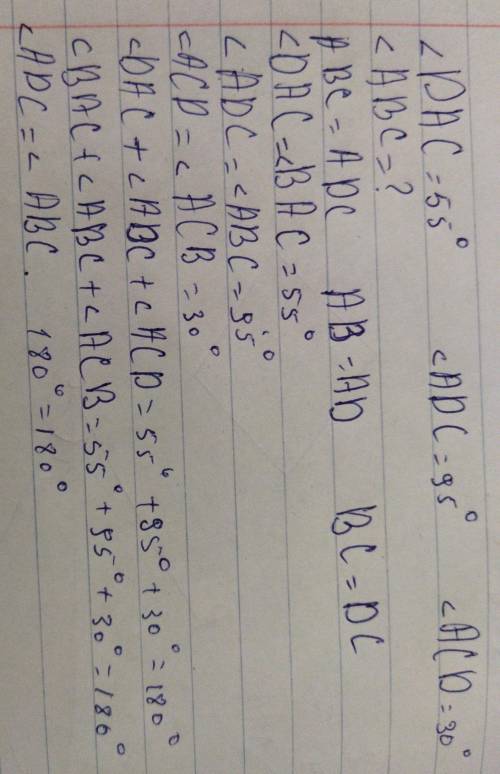 ∠DAC=55° ∠ADC=95° ∠ACD=30°
∠ABC=?
ABC=ADC AB=AD BC=DC
∠DAC=∠BAC=55°
∠ADC=∠ABC=95°
∠ACD=∠ACB=30°
∠DAC+∠ADC+∠ACD=55°+95°+30°=180°
∠BAC+∠ABC+∠ACB=55°+95°+30°=180°
∠ADC=∠ABC. 180°=180°